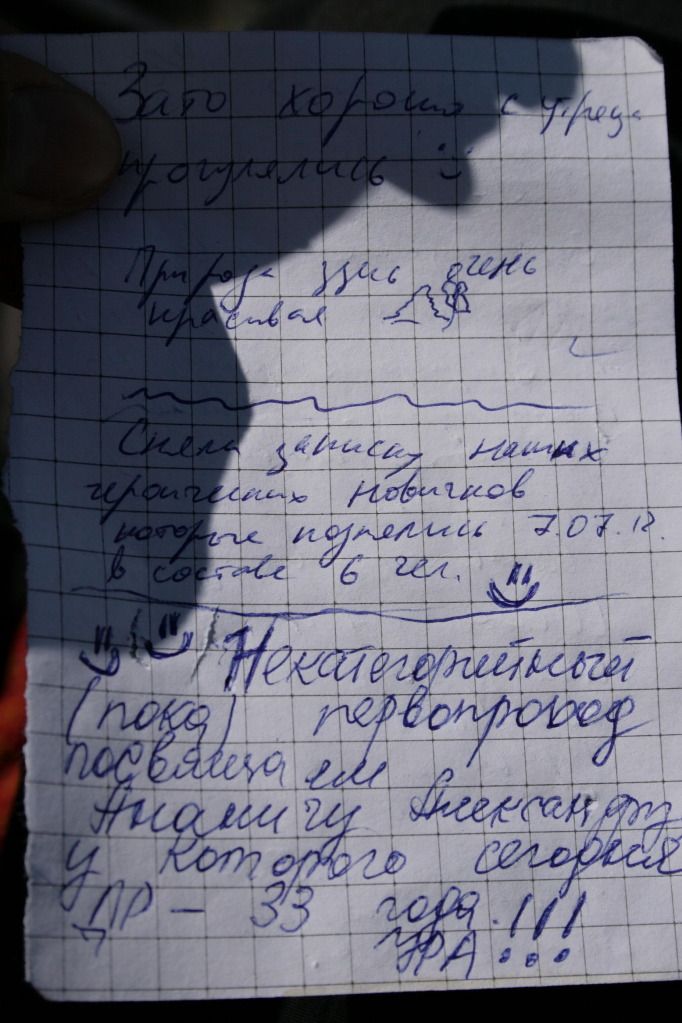 Зато хорошо с утреца
прогулялись
Природа здесь очень
красивая
Сняли записку наших
героических новичков
которые поднялись 7.07.12.
в составе 6 чел.
Некатегорийный
(пока) первопроход
посвящаем
Александру
у которого сегодня
ДР – 33 года.!!!
УРА!!!